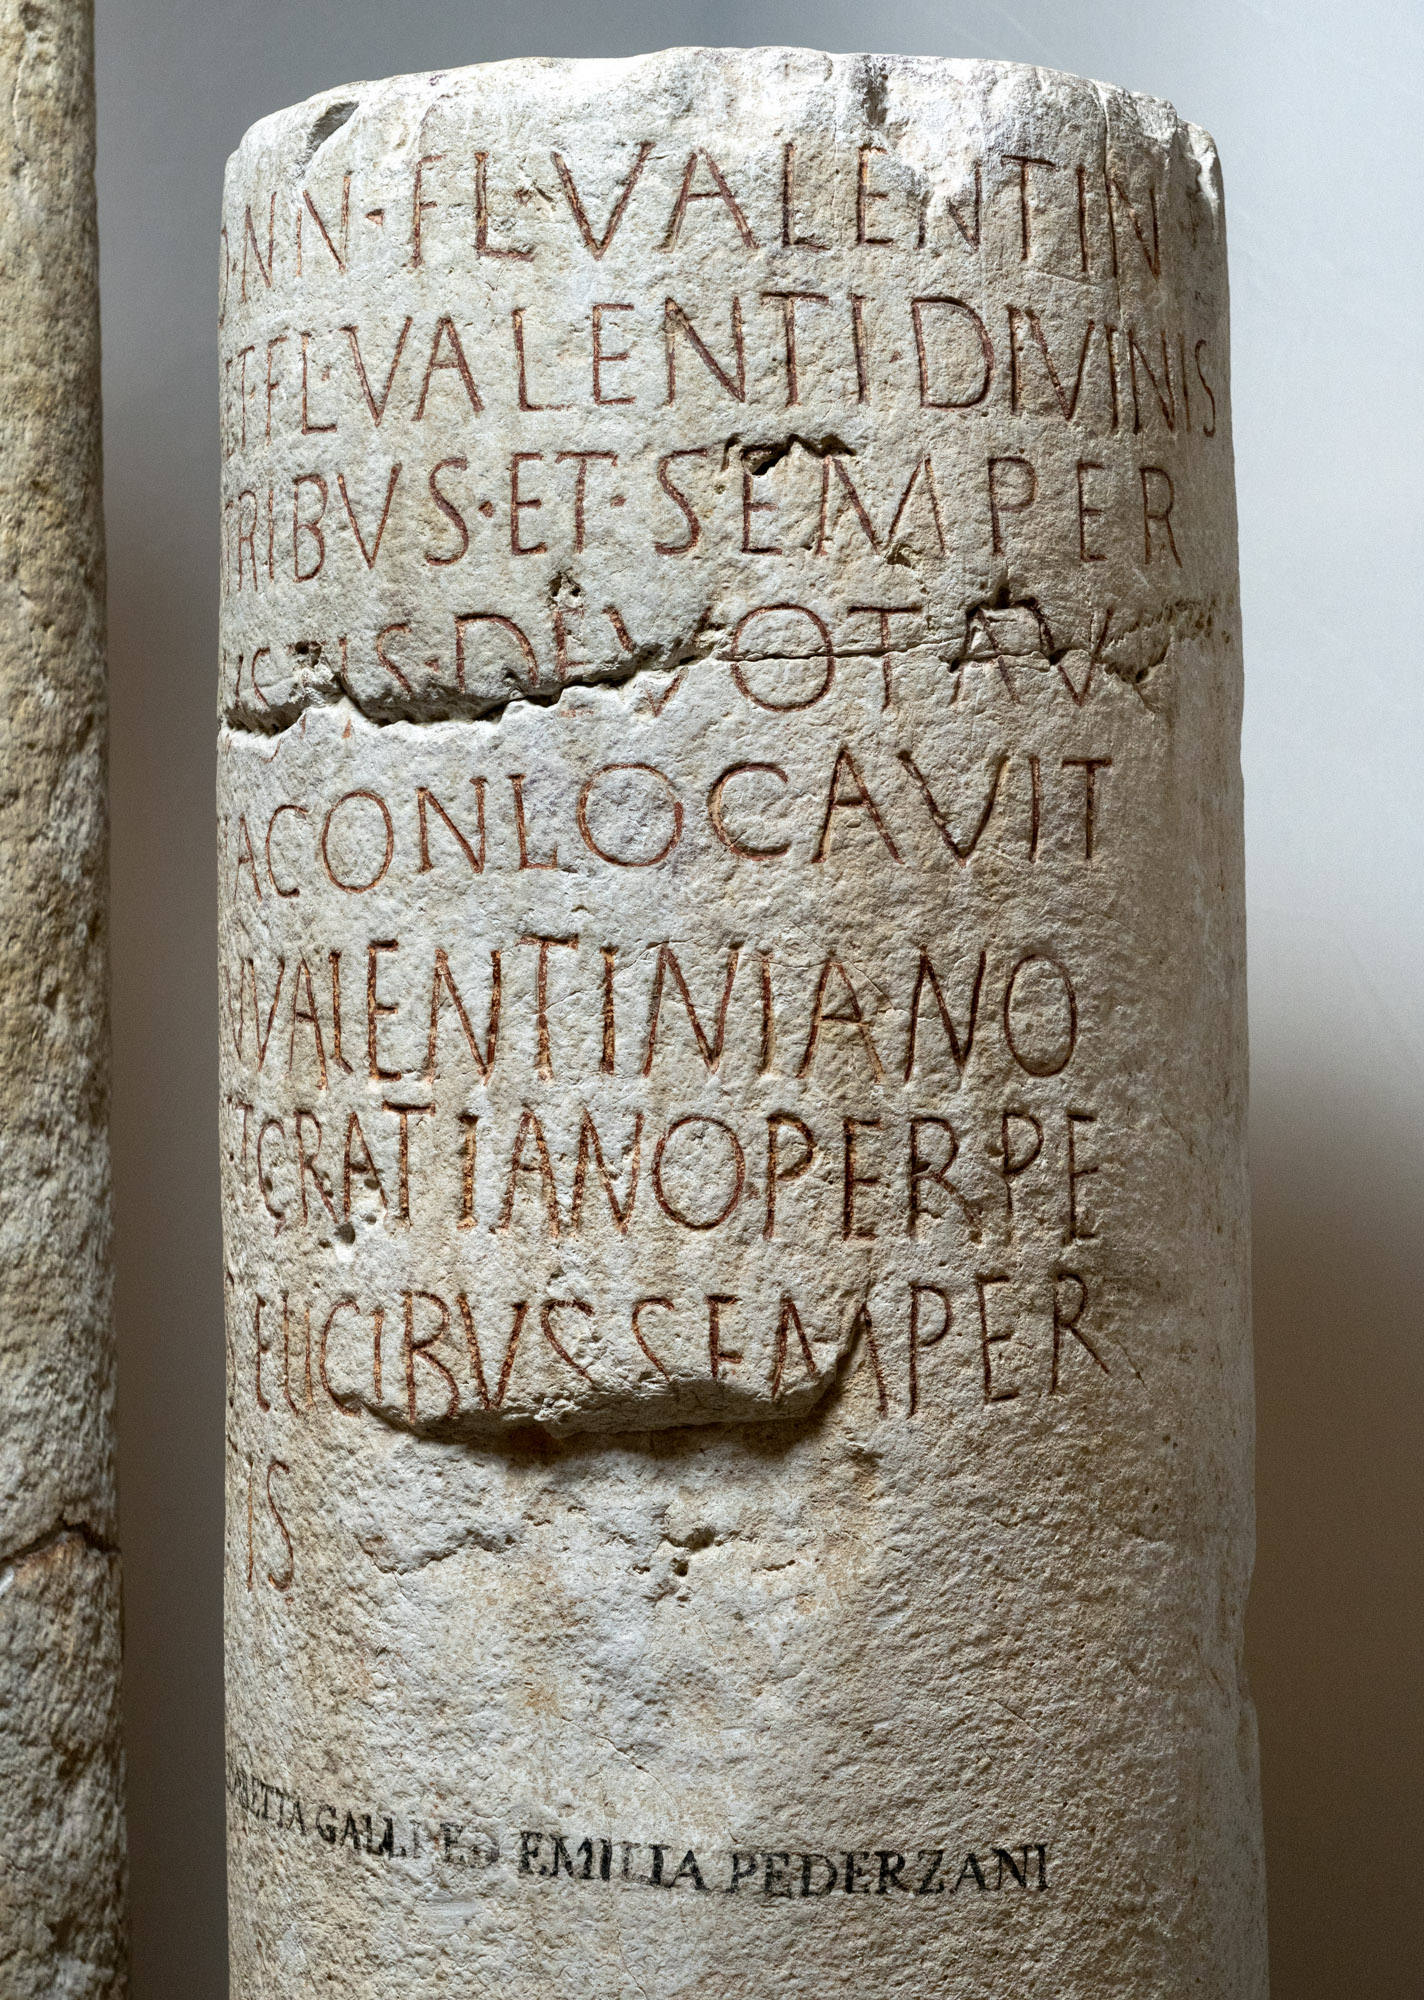 DNN·FL·VALENTIN
ET FL·VALENTI DIVINIS
TRIBVS·ET·SEMPER
VICTIS·DEVOTA V
ACONLOCAVIT
VALENTINIANO
ET GRATIANO PERPE
ELICIBVS SEMPER
TIS
RETTA GALLI ED EMILIA PEDERZANI